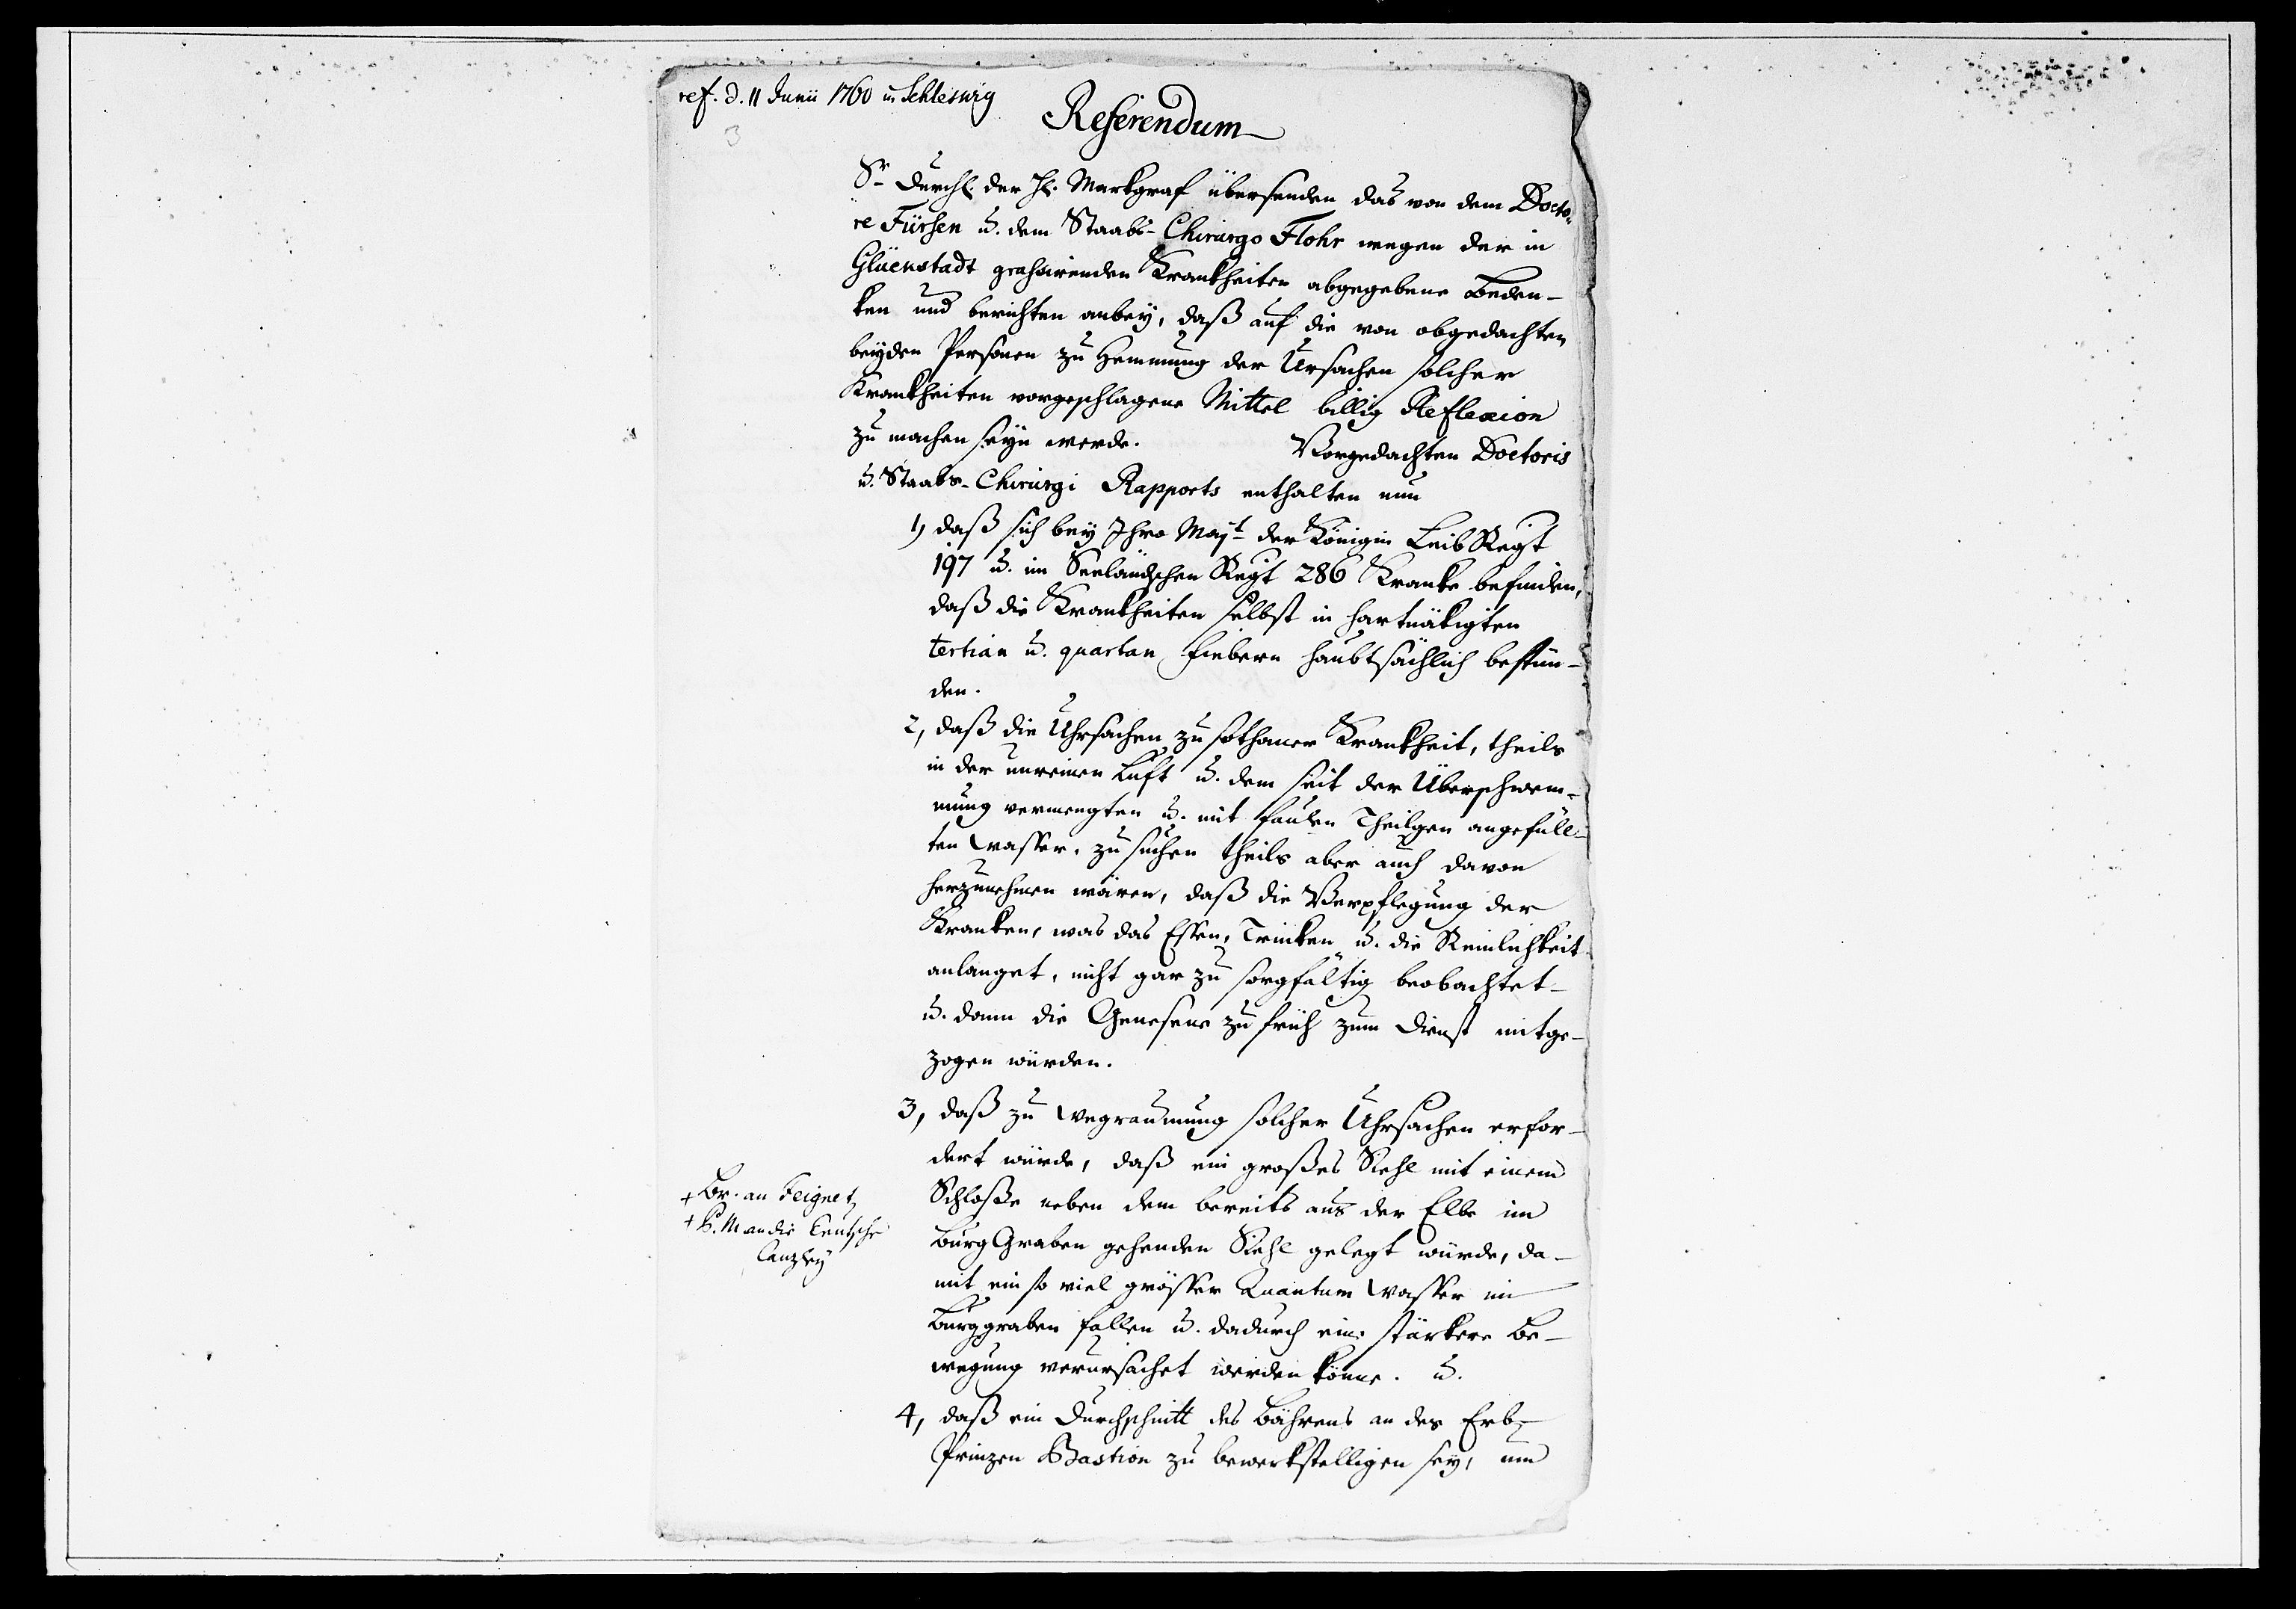 ref. d. 11 Junii 1760 in Schleswig
3
Referendum
Sr Durchl. der H. Markgraf übersenden das von dem Docto¬
re Fürsen u. dem Staabs-Chirurgo Flohr wegen der in
Glückstadt grassirenden Krankheiten abgegebene Beden¬
ken und berichten anbey, daß auf die von obgedachten
beyden Personen zu Hemmung der Ursachen solcher
Krankheiten vorgeschlagene Mittel billig Reflexion
zu machen seyn werde. Vorgedachten Doctoris
u. Staabs-Chirurgi Rapports enthalten nun
1) daß sich bey Ihro Majt der Königin Leib Regt
197 u. im Seeländschen Regt 286 Kranke befinden,
daß die Krankheiten selbst in hartnäkigten
tertian u. quartan Fiebern haubtsächlich bestün¬
den.
2, daß die Uhrsachen zu sothaner Krankheit, theils
in der unreinen Luft u. dem seit der Überschwem¬
mung vermengten u. mit faulen Theilgen angefüll¬
ten Wasser, zu suchen theils aber auch davon
herzunehmen wären, daß die Verpflegung der
Kranken, was das Essen, Trinken u. die Reinlichkeit
anlanget, nicht gar zu sorgfältig beobachtet
u. dann die Genesene zu früh zum Dienst mitge¬
zogen würden.
3, daß zu Wegraumung solcher Uhrsachen erfor¬
dert würde, daß ein großes Siehl mit einem
Schloße neben dem bereits aus der Elbe im
Burg Graben gehenden Siehl gelegt würde, da¬
mit ein so viel grösser Quantum Wasser im
Burggraben fallen u. dadurch eine stärkere Be¬
wegung verursachet werden könne. u.
4, daß ein Durchschnitt des Bährens an des Erb¬
Prinzen Bastion zu bewerkstelligen sey, um
+ Br. an Feignet
+ P. M an die Teutsche
Canzley